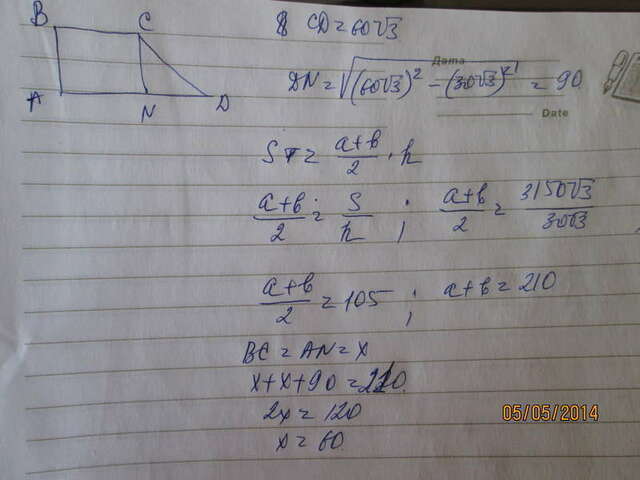 B C
A N D
CD = 60√3
Дата
DN = √(60√3)² - (30√3)² = 90
Date
S = a+b/2 · h
a+b/2 = S/h ; a+b/2 = 3150√3/30√3
a+b/2 = 105 ; a+b = 210
BC = AN = x
x + x + 90 = 210
2x = 120
x = 60
05/05/2014